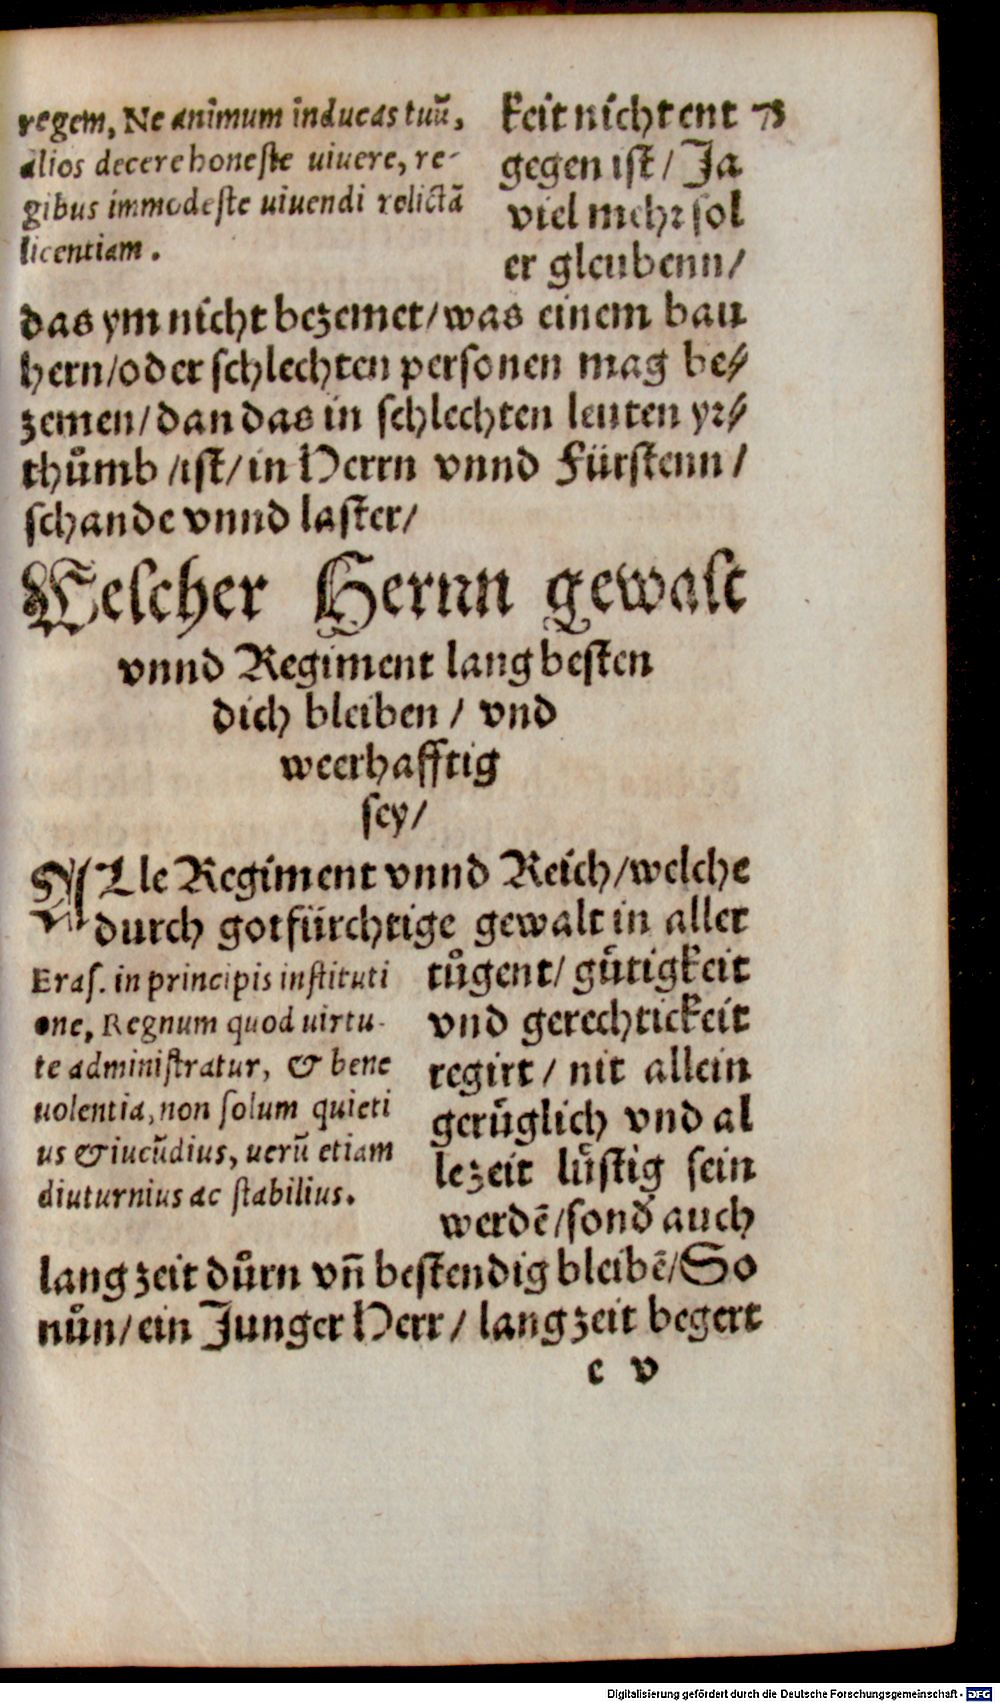 regem, Ne animum inducas tuũ,
alios decere honeſte uiuere, re-
gibus immodeſte uiuendi relictã
licentiam.
keit nicht ent
gegen iſt / Ja
viel mehꝛ ſol
er gleubenn /
das ym nicht bezemet / was einem bau
hern / oder ſchlechten perſonen mag be⸗
zemen / dan das in ſchlechten leuten yꝛ⸗
thůmb / iſt / in Herrn vnnd Fürſtenn /
ſchande vnnd laſter /
Welcher Hernn gewalt
vnnd Regiment lang beſten
dich bleiben / vnd
weerhafftig
ſey /
ALle Regiment vnnd Reich / welche
durch gotfürchtige gewalt in aller
Eraſ. in principis inſtituti
one, Regnum quod uirtu-
te adminiſtratur, & bene
uolentia, non ſolum quieti
us & iucũdius, uerũ etiam
diuturnius ac ſtabilius.
tůgent / gůtigkeit
vnd gerechtickeit
regirt / nit allein
gerůglich vnd al
lezeit lůſtig ſein
werdẽ / ſond̛ auch
lang zeit důrn vñ beſtendig bleibẽ / So
nůn / ein Junger Herr / lang zeit begert
e v
Digitalisierung gefördert durch die Deutsche Forschungsgemeinschaft - DFG